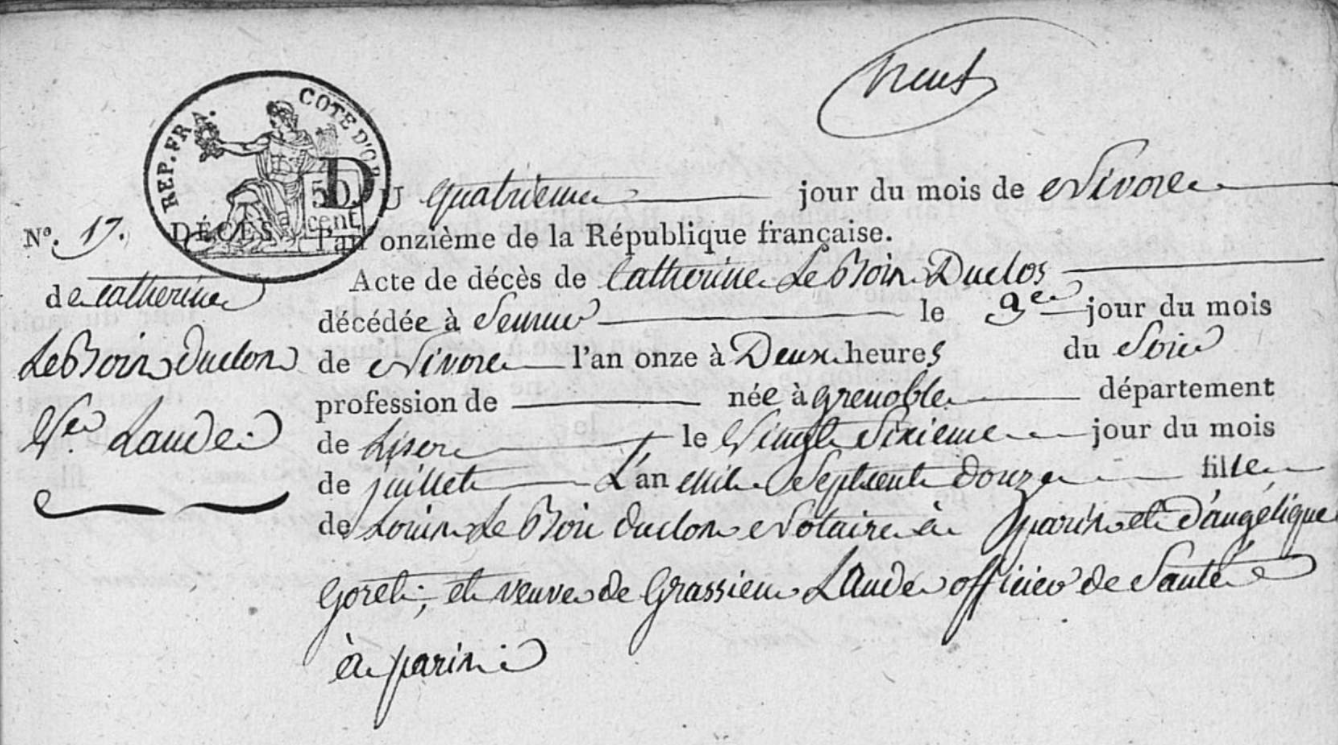 neuf
REP. FRA. COTE D'OR
50 cent
DU quatrieme jour du mois de Nivose
N° 17. DÉCÈS l'an onzième de la République française.
Acte de décès de Catherine Le Boin Duclos
de catherine
décédée à Seurre le 3e jour du mois
Le Boin duclos de Nivose l'an onze à Deux heures du Soir
profession de née à grenoble département
Ve Laude de Lisere le Vingt Sixieme jour du mois
de juillet L'an Mil Septcent douze fille
de Louis Le Boin duclos Notaire à paris et d'angélique
goret; et veuve de Grassien Laude officier de Santé
à paris